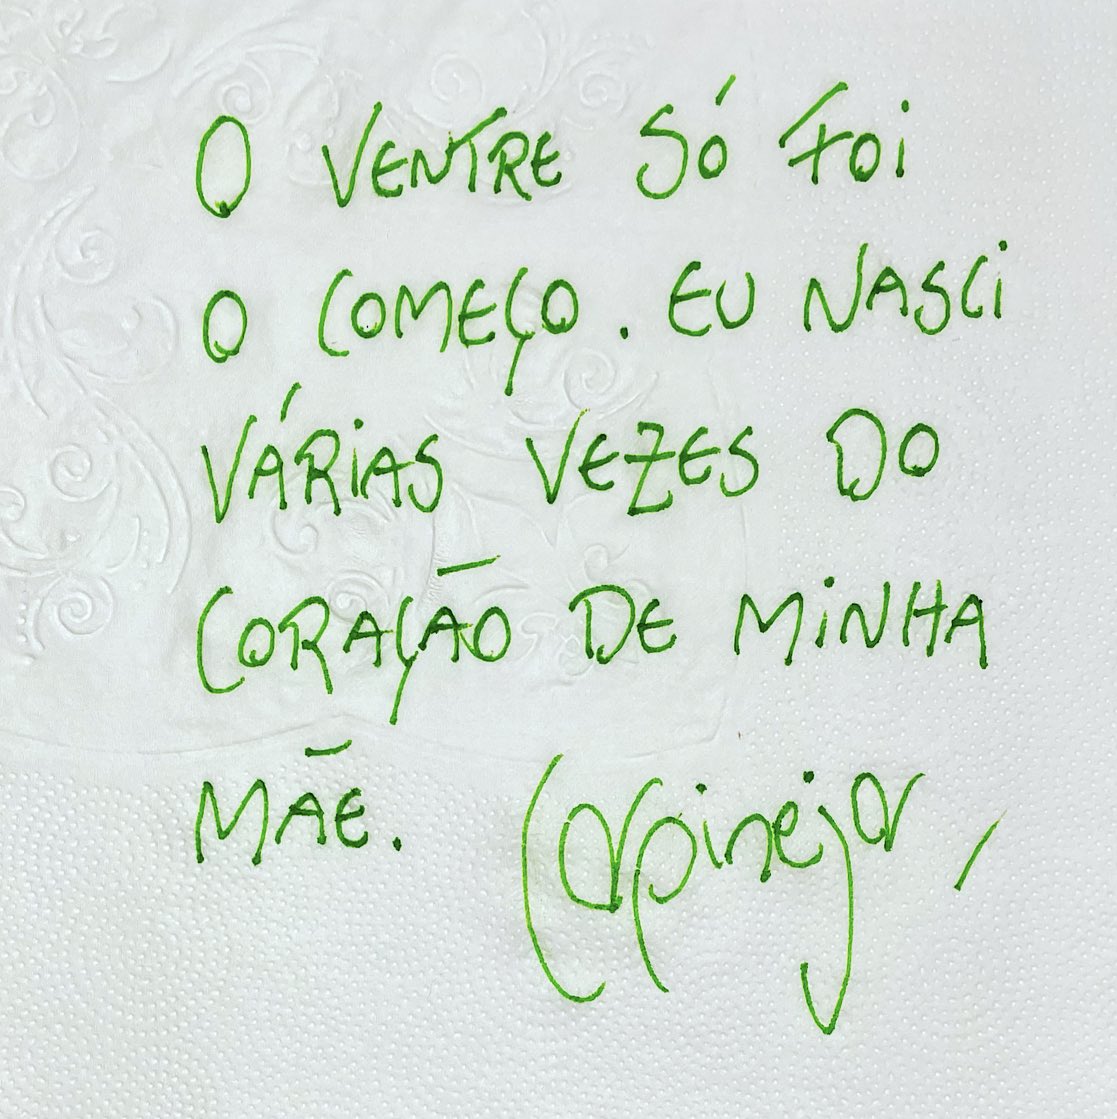 O VENTRE SÓ FOI
O COMEÇO. EU NASCI
VÁRIAS VEZES DO
CORAÇÃO DE MINHA
MÃE. Carpinejar,